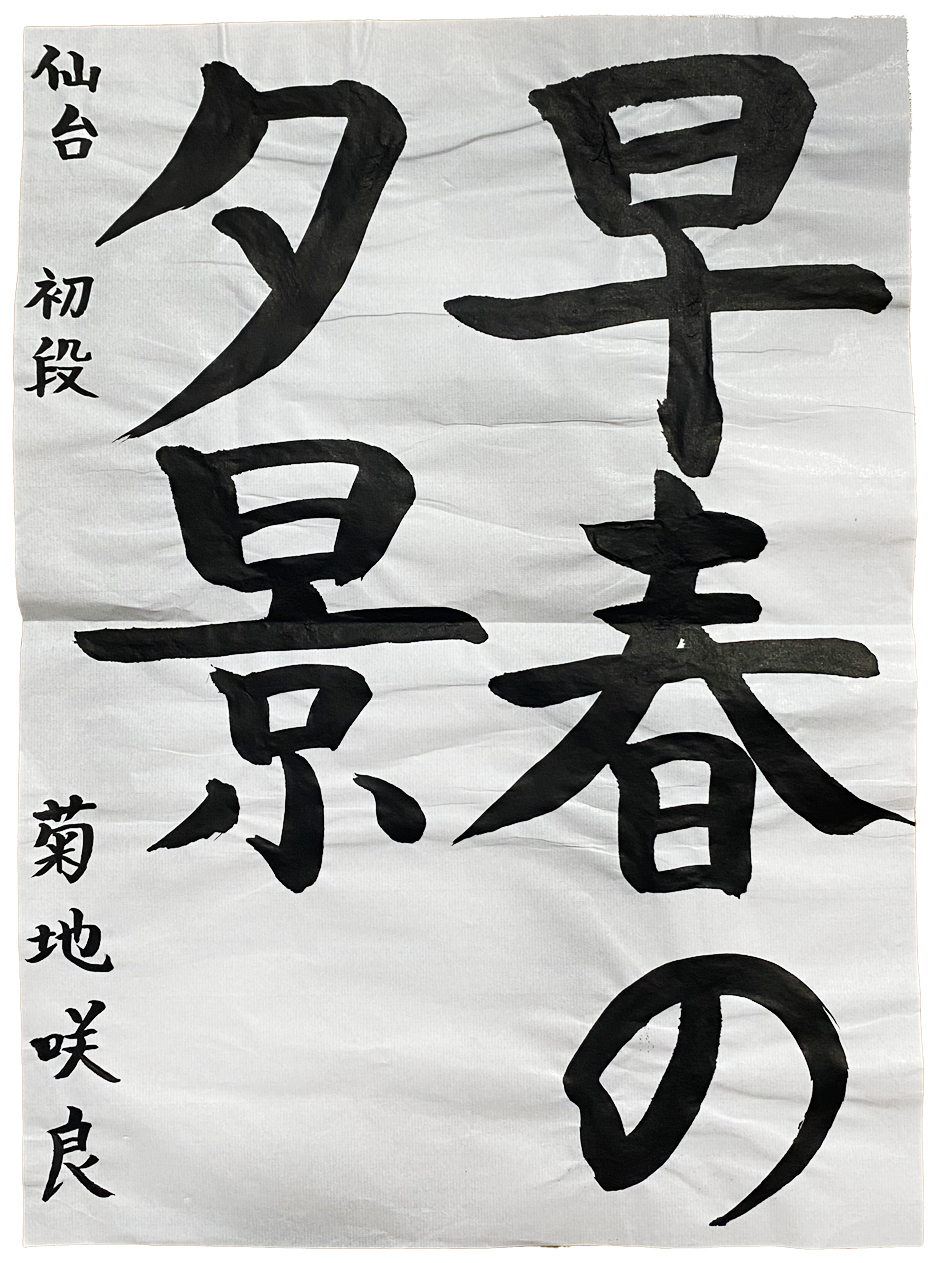 早春の
夕景
仙台 初段 菊地咲良